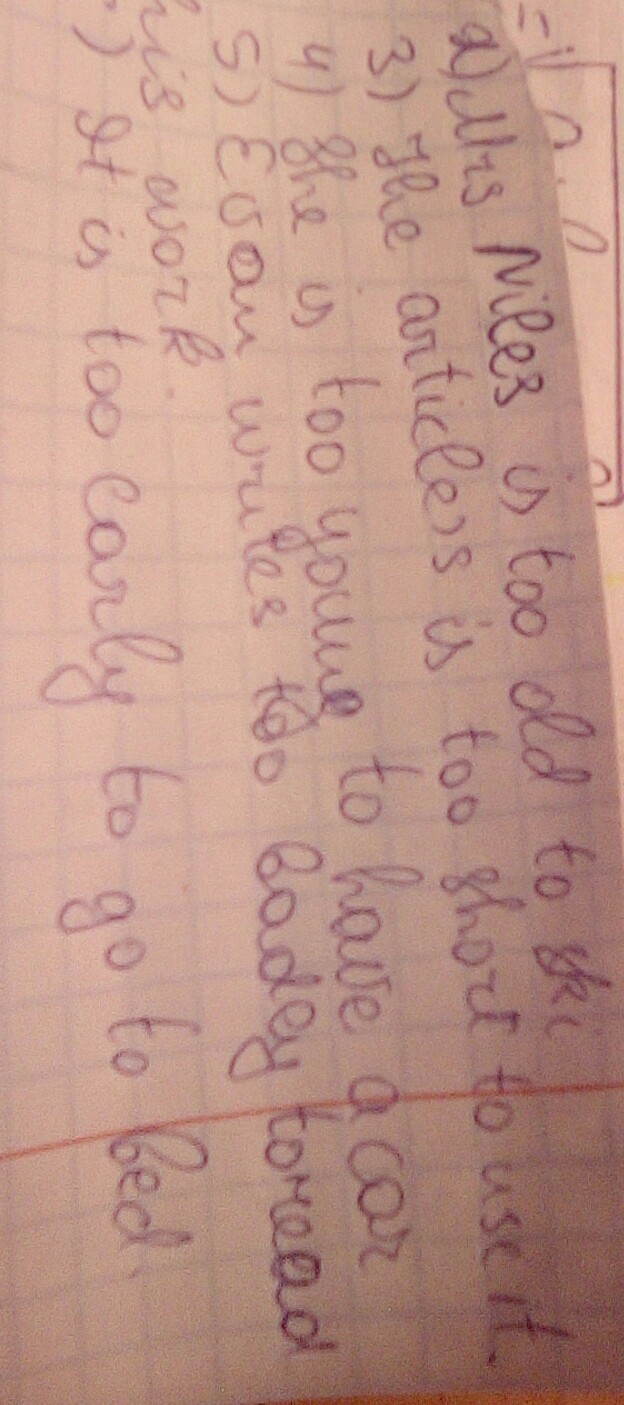 2) Mrs Niles is too old to ski
3) The articles is too short to use it.
4) She is too young to have a car
5) Evan writes too badey toread
his work.
) It is too early to go to bed.